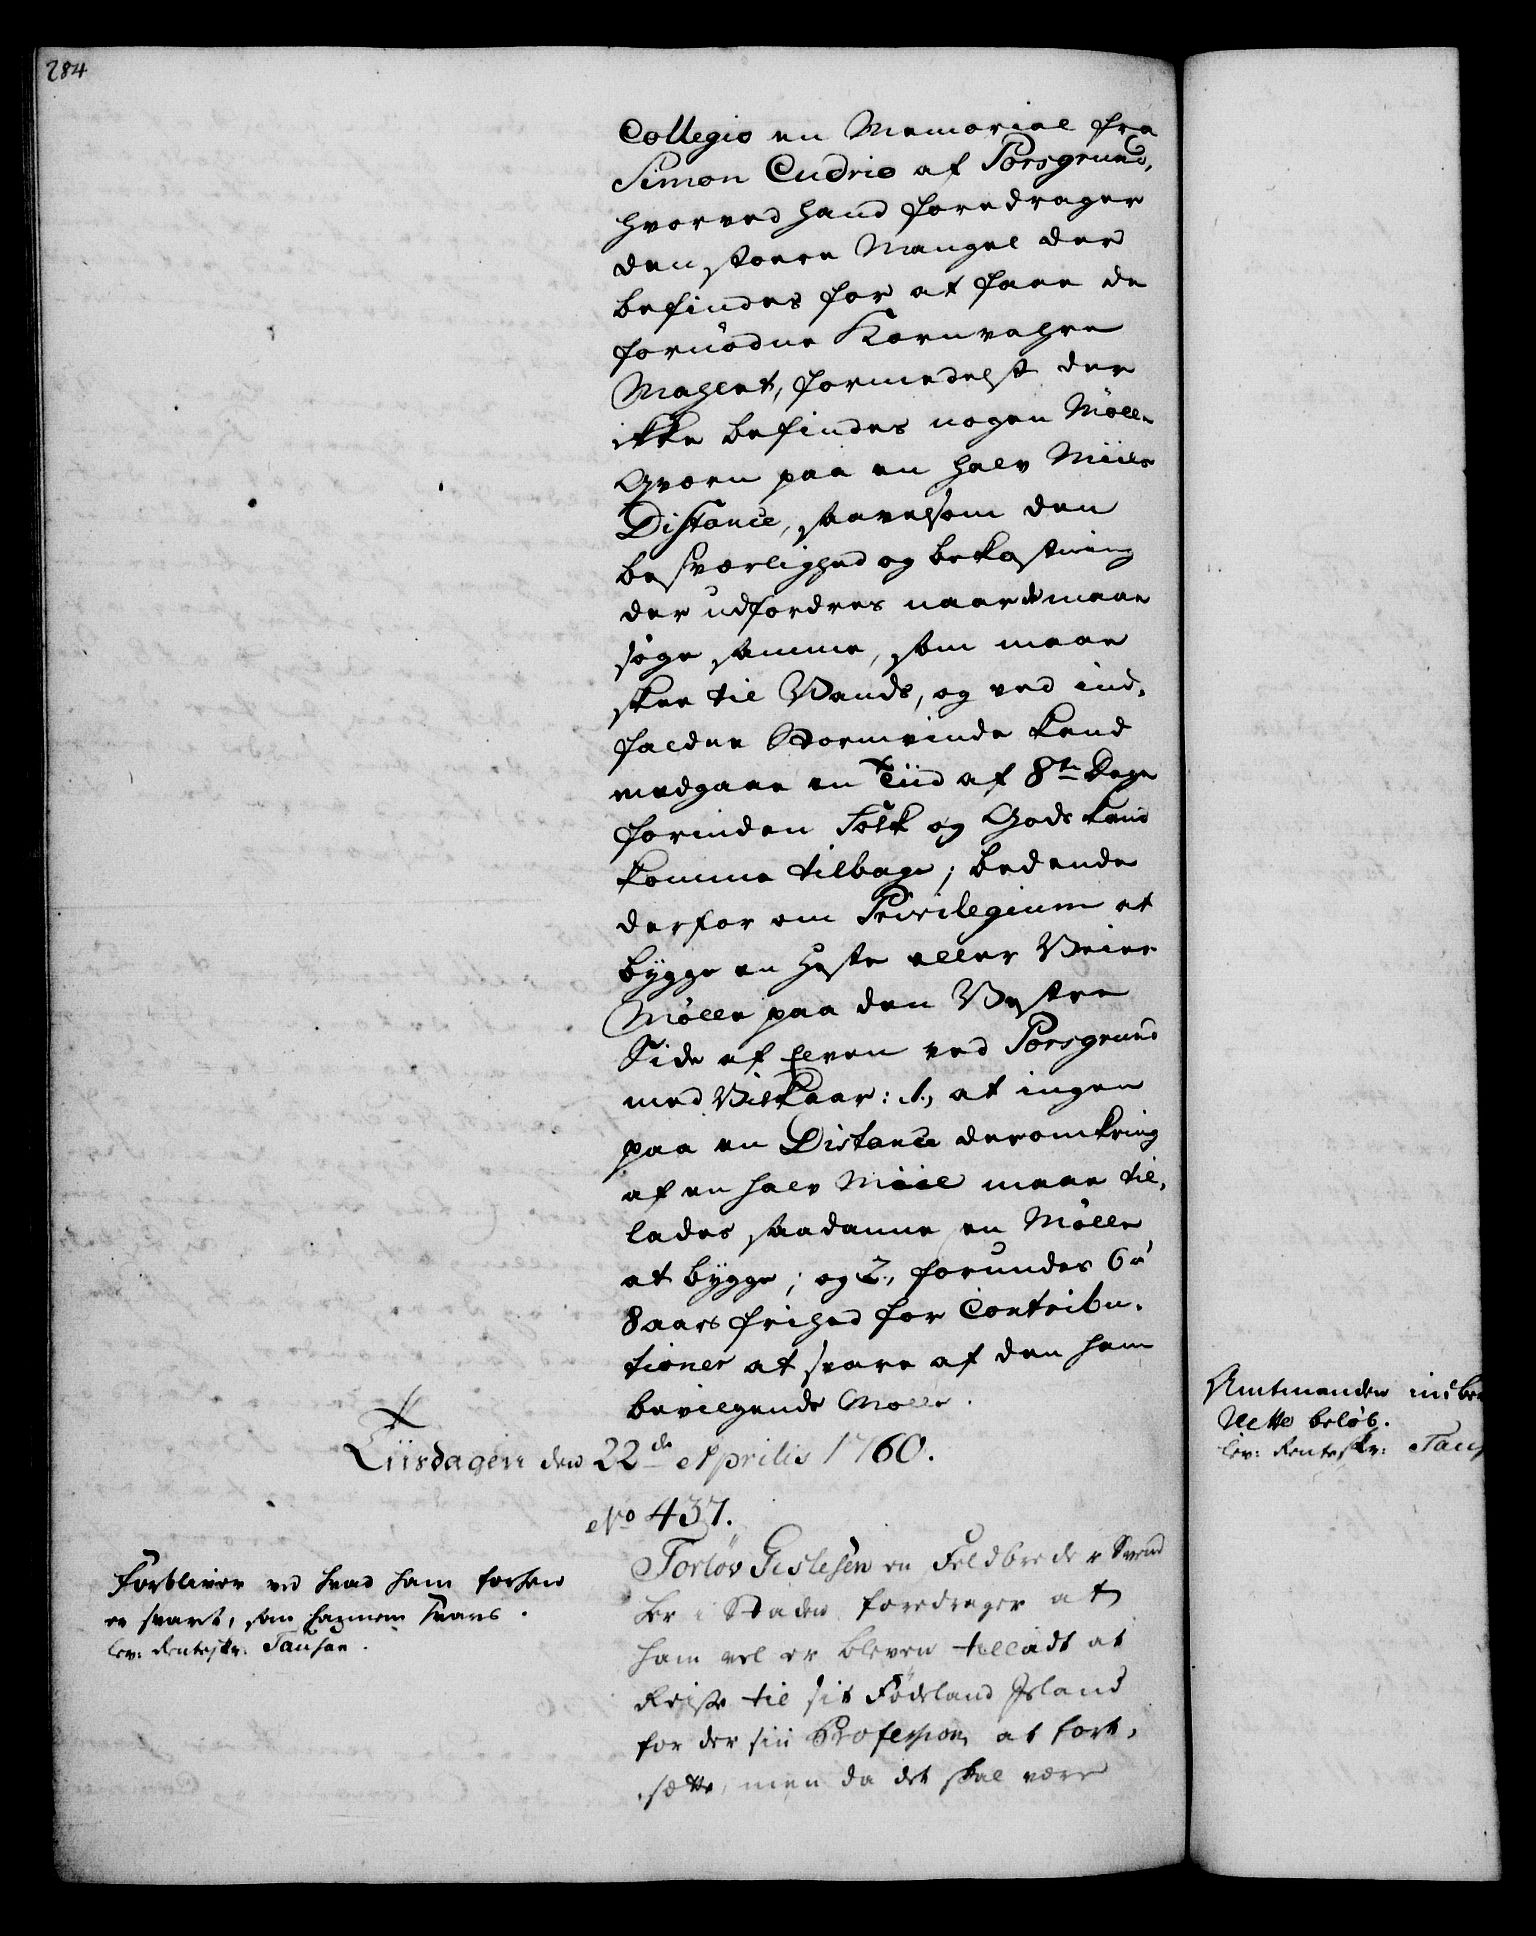 284
Collegio en Memorial fra
Simon Cudrio af Porsgrund,
hvorved hand foredrager
den stoere Mangel der
befindes for at faae de
fornødne Kornvahre
Mahlet, formedelst der
ikke befindes nogen Mølle
Qvern paa en halv Miils
Distance, saavelsom den
besværlighed og bekostning
der udfordres naar de maae
søge samme, som maae
skee til Vands, og ved ind-
faldne Stormvinde kand
medgaae en Tiid af 8te Dage
forinden Folk og Gods kand
komme tilbage; bedende
derfor om Privilegium at
bygge en Heste eller Veier
Mølle paa den Vestre
Side af Elven ved Porsgrund
med Vilkaar: 1., at ingen
paa en Distance deromkring
af en halv Miil maae til-
lades saadanne en Mølle
at bygge; og 2., forundes 6 à
8 aars frihed for Contribu-
tioner at svare af den ham
bevilgende Mølle.
Tiisdagen den 22de Aprilis 1760.
No 437.
Torlöv Gislesen en Feldbereder Svend
her i Staden foredrager at
ham vel er bleven tilladt at
Reise til sit Fødeland Island
for der sin Profession at fort-
sætte, men da det skal være
Forbliver ved hvad ham forhen
er svaret, som svares.
lev: Renteskr: Tausan.
Amtmanden
Nette beløb.
lev: Renteskr: